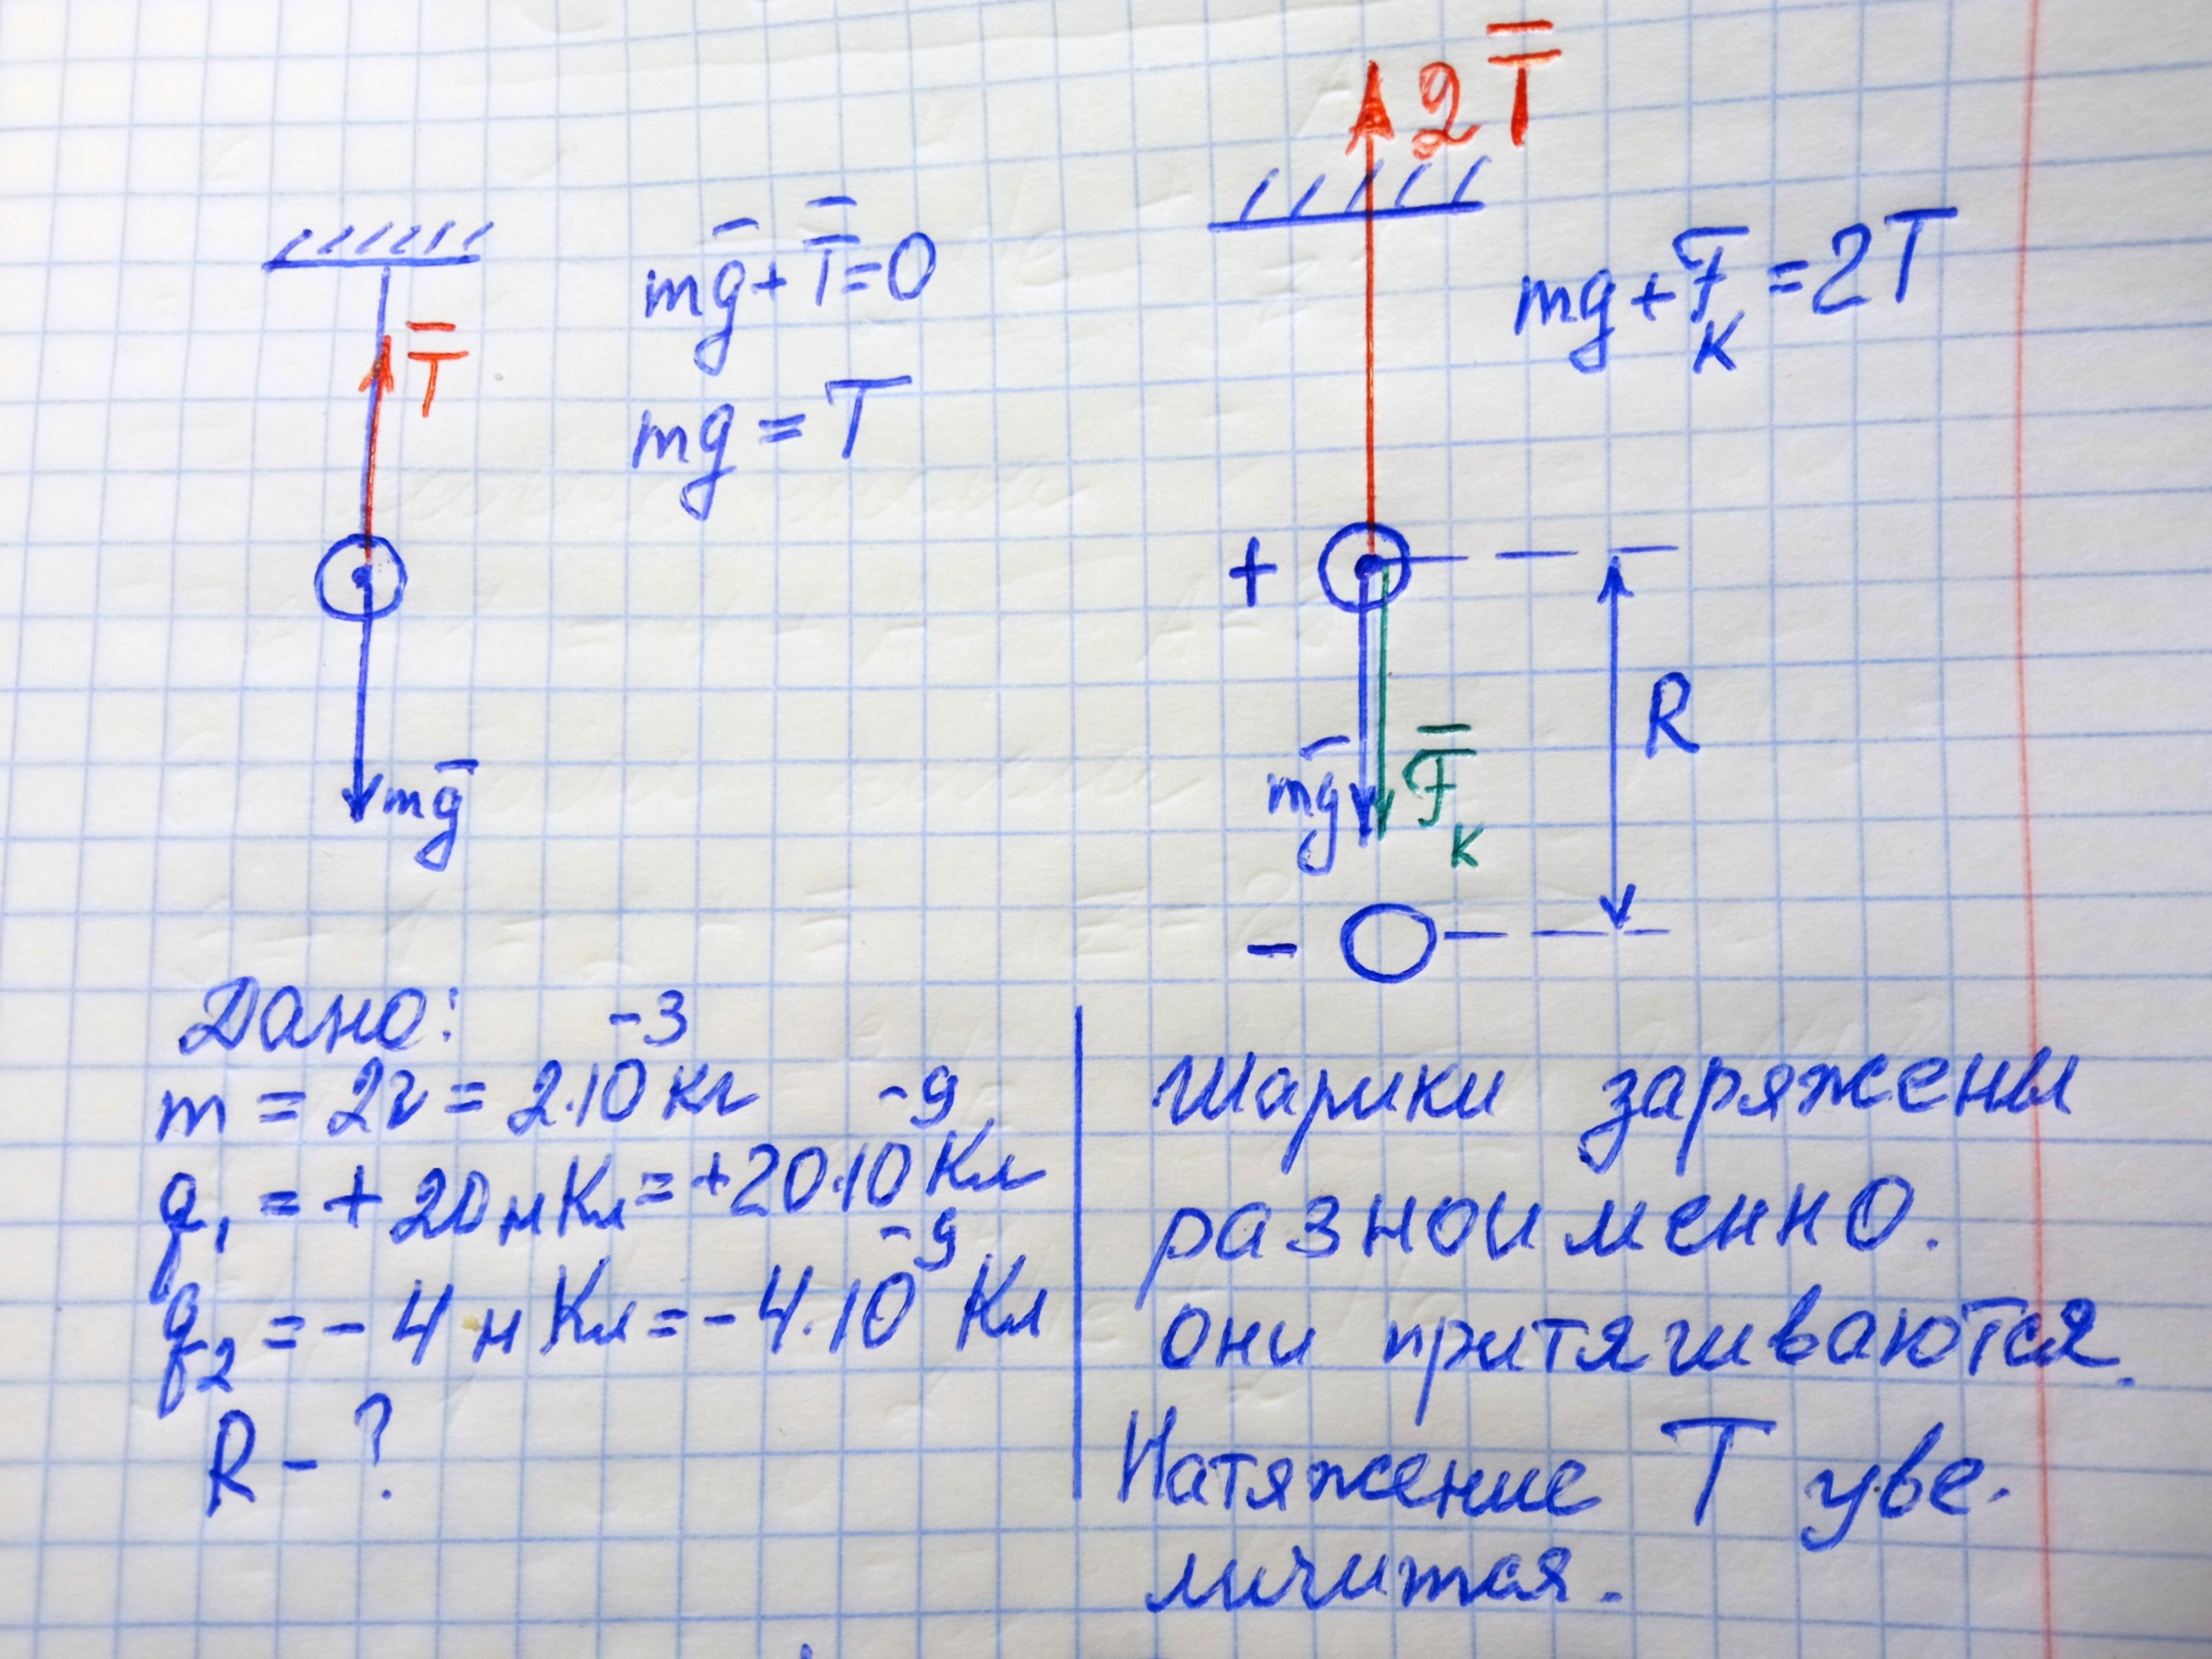 2T̅
mg̅ + T̅ = 0
mg = T
T̅
mg̅
mg + F_K = 2T
+
R
mg̅
F̅_K
-
Дано:
m = 2г = 2·10⁻³ кг
q₁ = + 20 нКл = +20·10⁻⁹ Кл
q₂ = - 4 нКл = -4·10⁻⁹ Кл
R - ?
Шарики заряжены
разноименно.
они притягиваются.
Натяжение T уве-
личится.